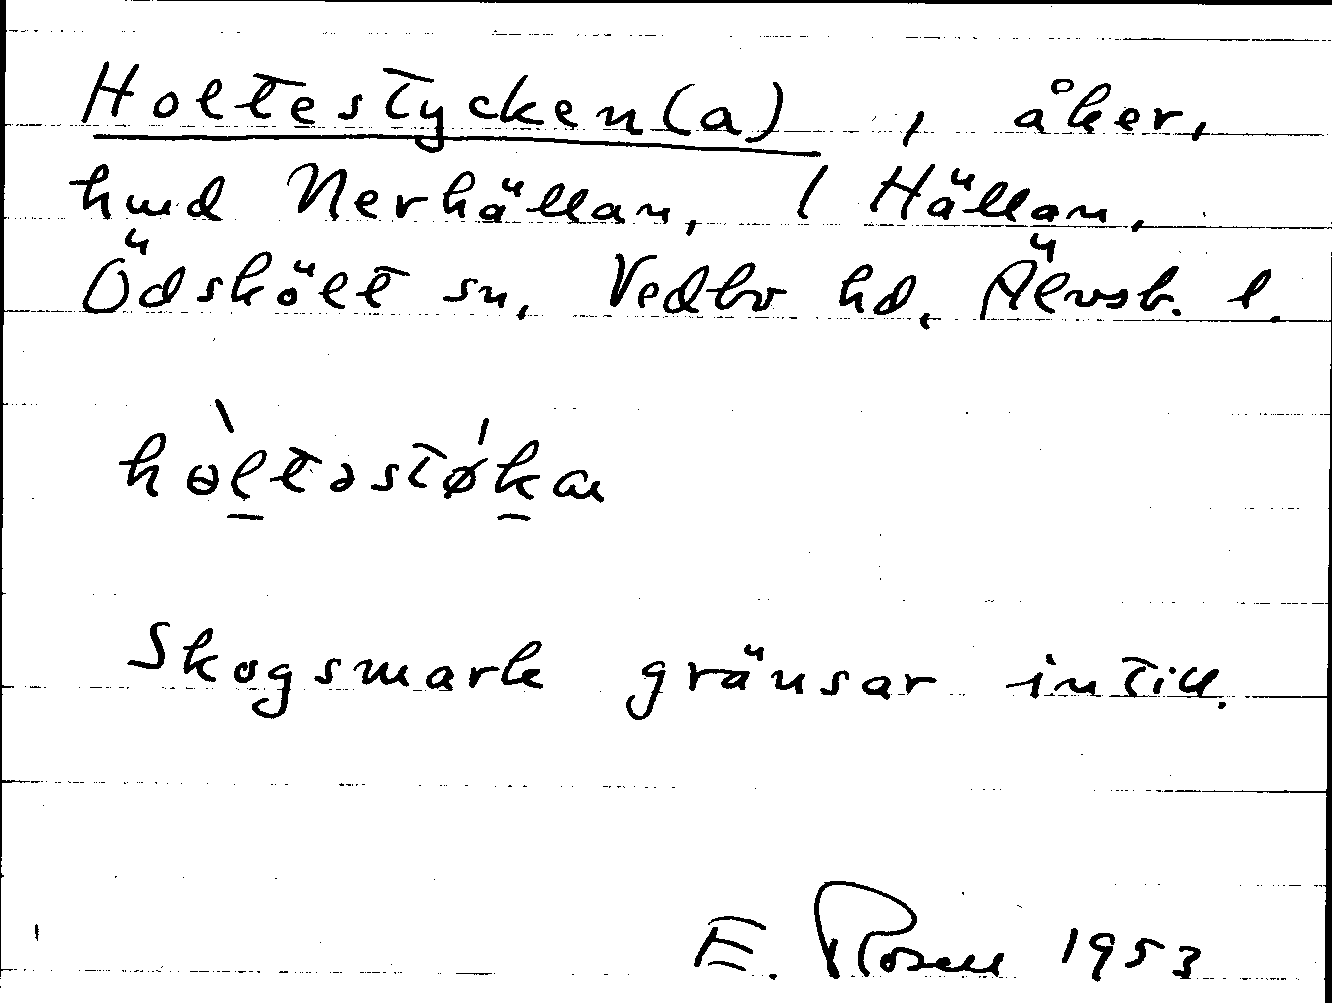 Holtestycken(a), åker,
hmd Nerhällan, 1 Hällan,
Ödskölt sn, Vedbo hd, Älvsb. l.
hɵ̀ltəstǿkɑ
Skogsmark gränsar intill.
E. Rosell 1953